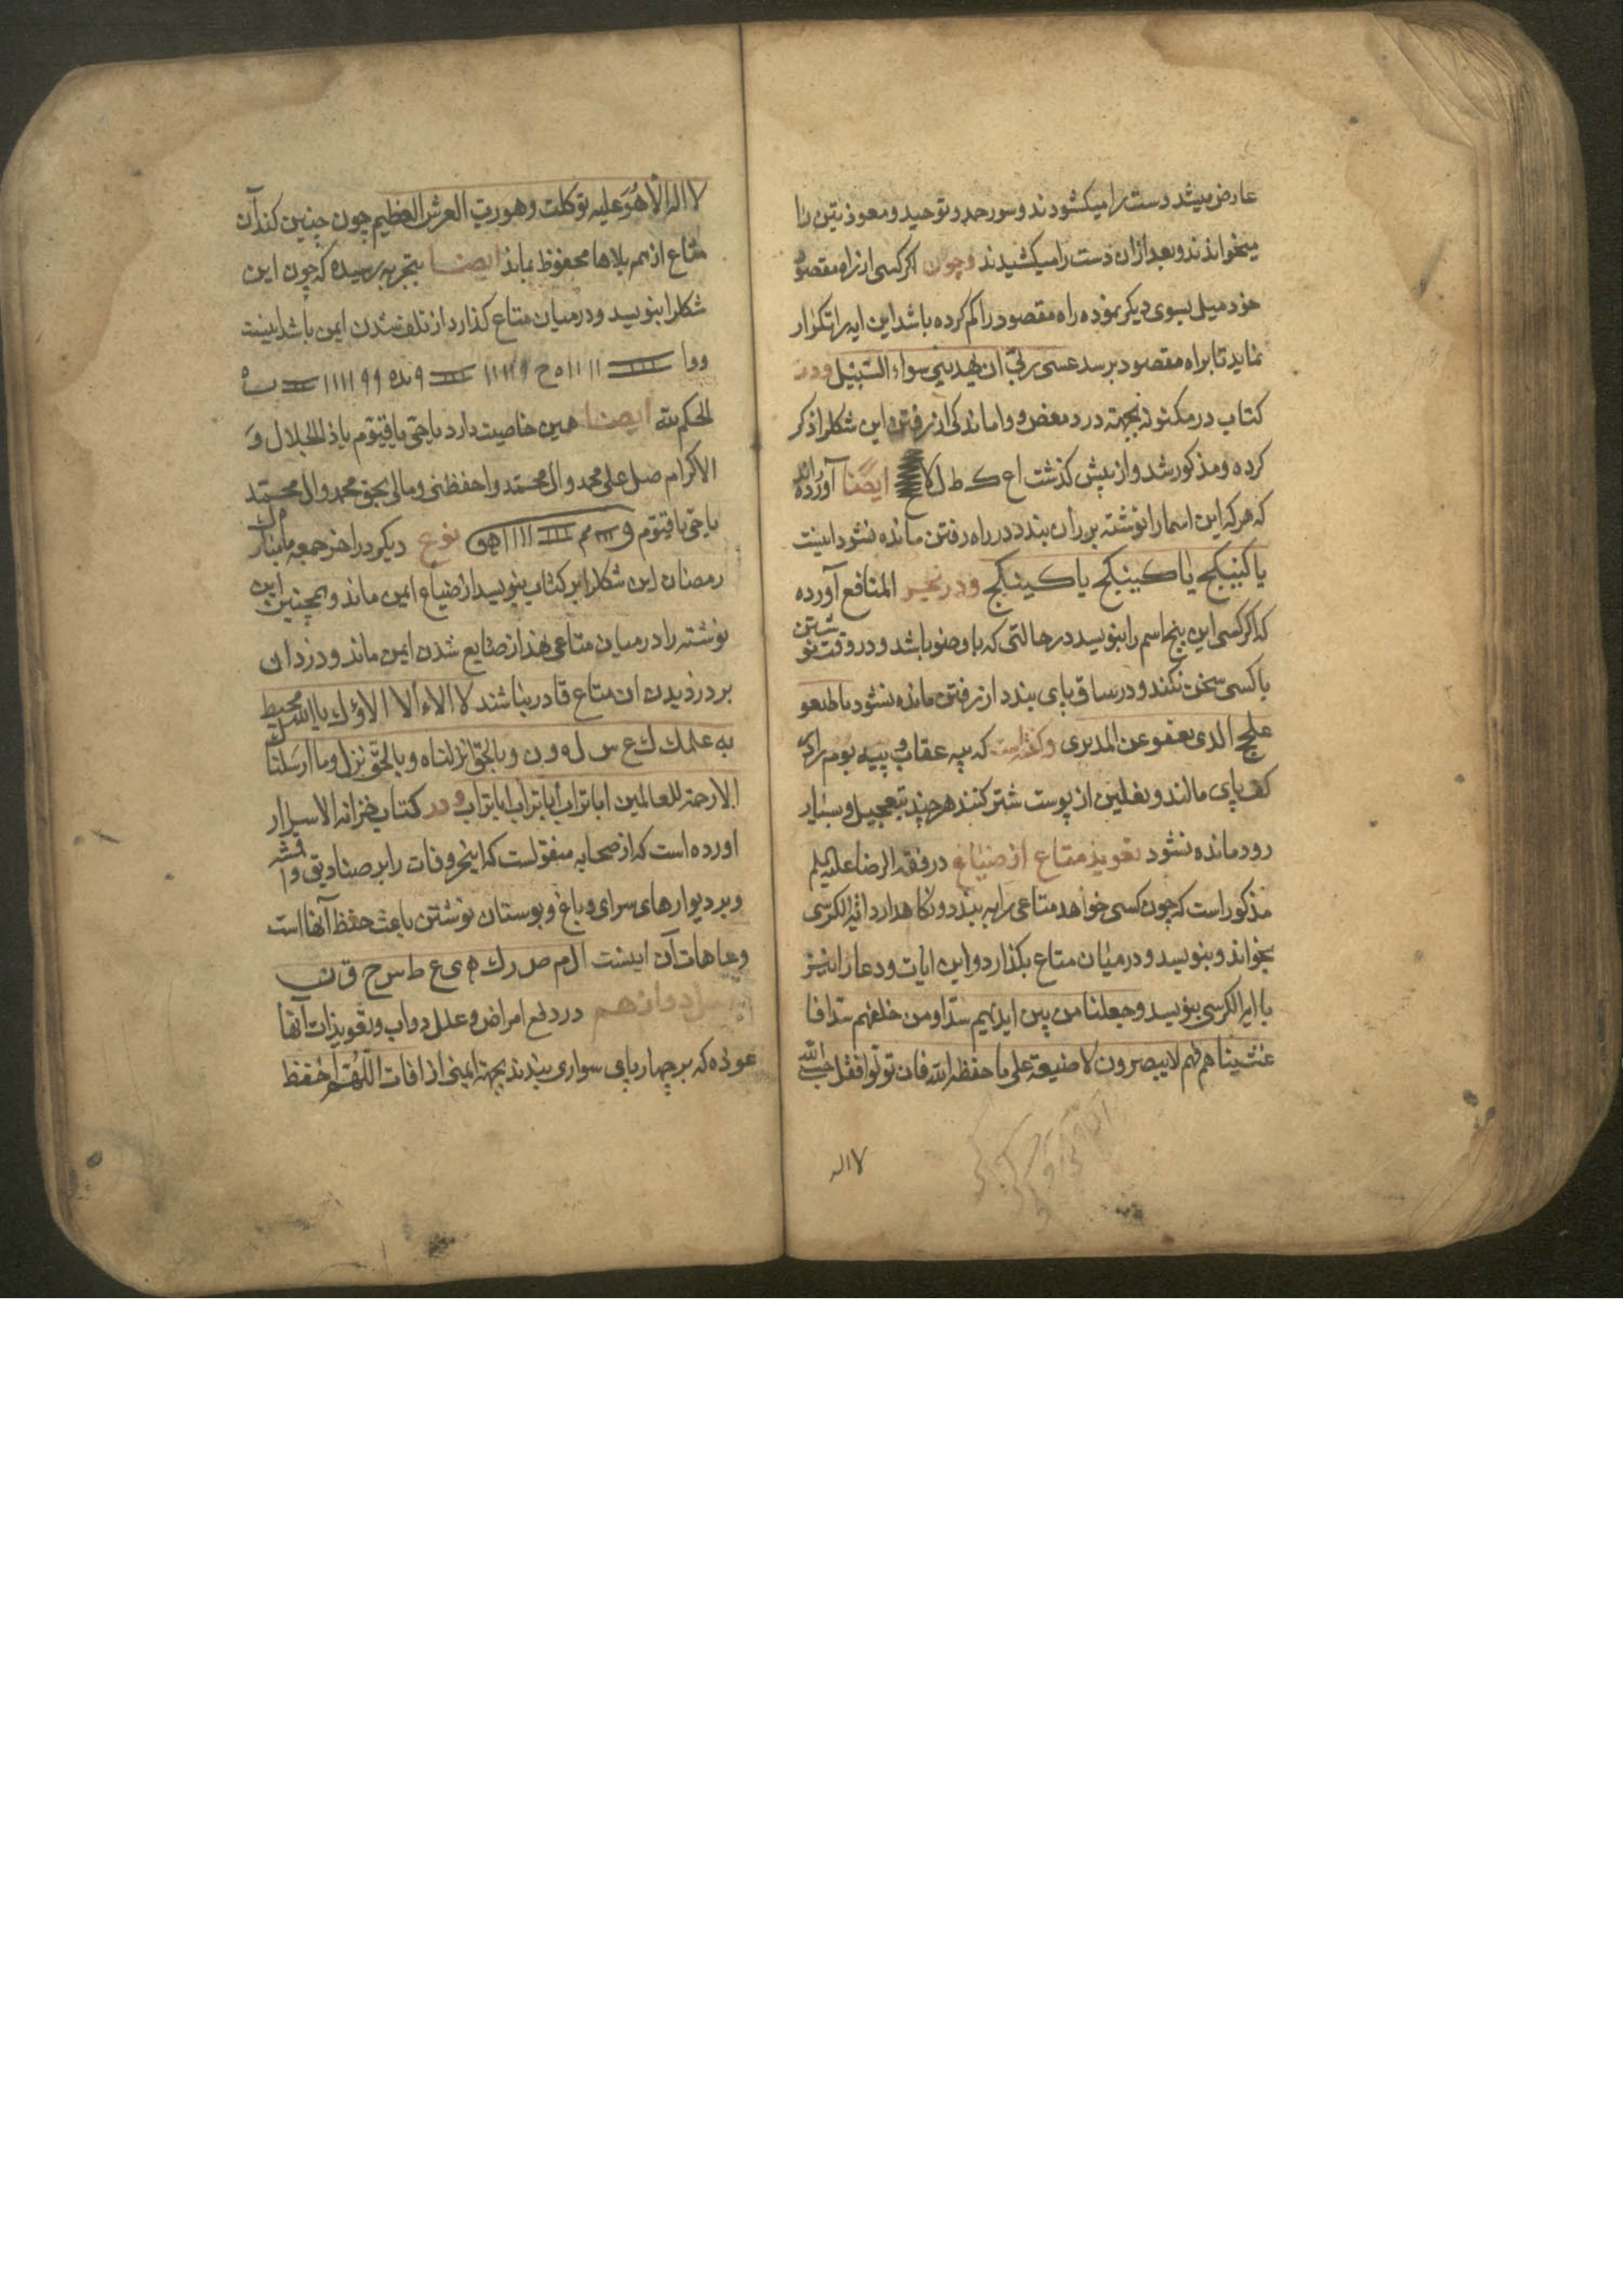 عارض میشد دست را میکشودند و سوره حمد و توحید و معوذتین را
میخواندند و بعد ازان دست را میکشیدند و چون اکر کسی از راه مقصود
خود میل بسوی دیکر نموده راه مقصود را کم کرده باشد این ایه را تکرار
نماید تا براه مقصود برسد عسی ربی ان یهدینی سواء السبیل و در
کتاب در مکنون بجهته درد مغص و واماندکی از رفتن این شکل را ذکر
کرده و مذکور شد و از پیش کذشت اع ک ط ل لاع ایضا آورده اند
که هر که این اسما را نوشته بر ران بندد در راه رفتن مانده نشود اینست
یا کبیکج یا کبیکج یا کبیکج و در بحر المنافع آورده
که اکر کسی این پنج اسم را بنویسد در حالتی که با وضو باشد و در وقت نوشتن
با کسی سخن نکند و در ساق پای بندد از رفتن مانده نشود
الذی یعفو عن و کفته است که پیه عقاب و پیه بوم را در
کف پای مالند و نعلین از پوست شتر کنند هر چند بتعجیل و بسیار
رود مانده نشود تعویذ متاع از ضیاع در فقه الرضا علیه السلم
مذکور است که چون کسی خواهد متاعی را به بندد و نکاهدارد ایه الکرسی
بخواند و بنویسد و در میان متاع بکذارد و این ایات و دعا را نیز
با ایه الکرسی بنویسد وجعلنا من بین ایدیهم سدا ومن خلفهم سدا فا
غشیناهم فهم لا یبصرون لا ضیعة علی ما حفظه الله فان تولوا فقل حسبی الله
لا اله
لا اله الا هو علیه توکلت وهو رب العرش العظیم چون چنین کند آن
متاع از همه بلاها محفوظ بماند ایضا بتجربه رسیده که چون این
شکل را بنویسد و در میان متاع کذارد از تلف شدن ایمن باشد اینست
الحکم لله ایضا همین خاصیت دارد یا حی یا قیوم یا ذا الجلال و
الاکرام صل علی محمد وال محمد واحفظنی ومالی بحق محمد وال محمد
یا حی یا قیوم نوع دیکر در اخر جمعه ماه مبارک
رمضان این شکل را بر کتاب بنویسد از ضیاع ایمن ماند و همچنین این
نوشته را در میان متاعی نهند از ضایع شدن ایمن ماند و دزدان
بر دزدیدن ان متاع قادر نباشند لا الاء الا الاؤک یا الله محیط
به علمک ک ع س ل ه و ن وبالحق انزلناه وبالحق نزل وما ارسلنا
الا رحمة للعالمین ابا تراب ابا تراب ابا تراب و در کتاب خزانه الاسرار
اورده است که از صحابه منقولست که این حروفات را بر صنادیق و اقمشه
و بر دیوارهای سرای و باغ و بوستان نوشتن باعث حفظ آنها است
و عاهات آن اینست ال م ص ر ک ه ی ع ط س ح ق ن
دوازدهم در دفع امراض و علل دواب و تعویذات آنها
عوذه که بر چهارپای سواری بندند بجهته ایمنی از افات اللهم احفظ